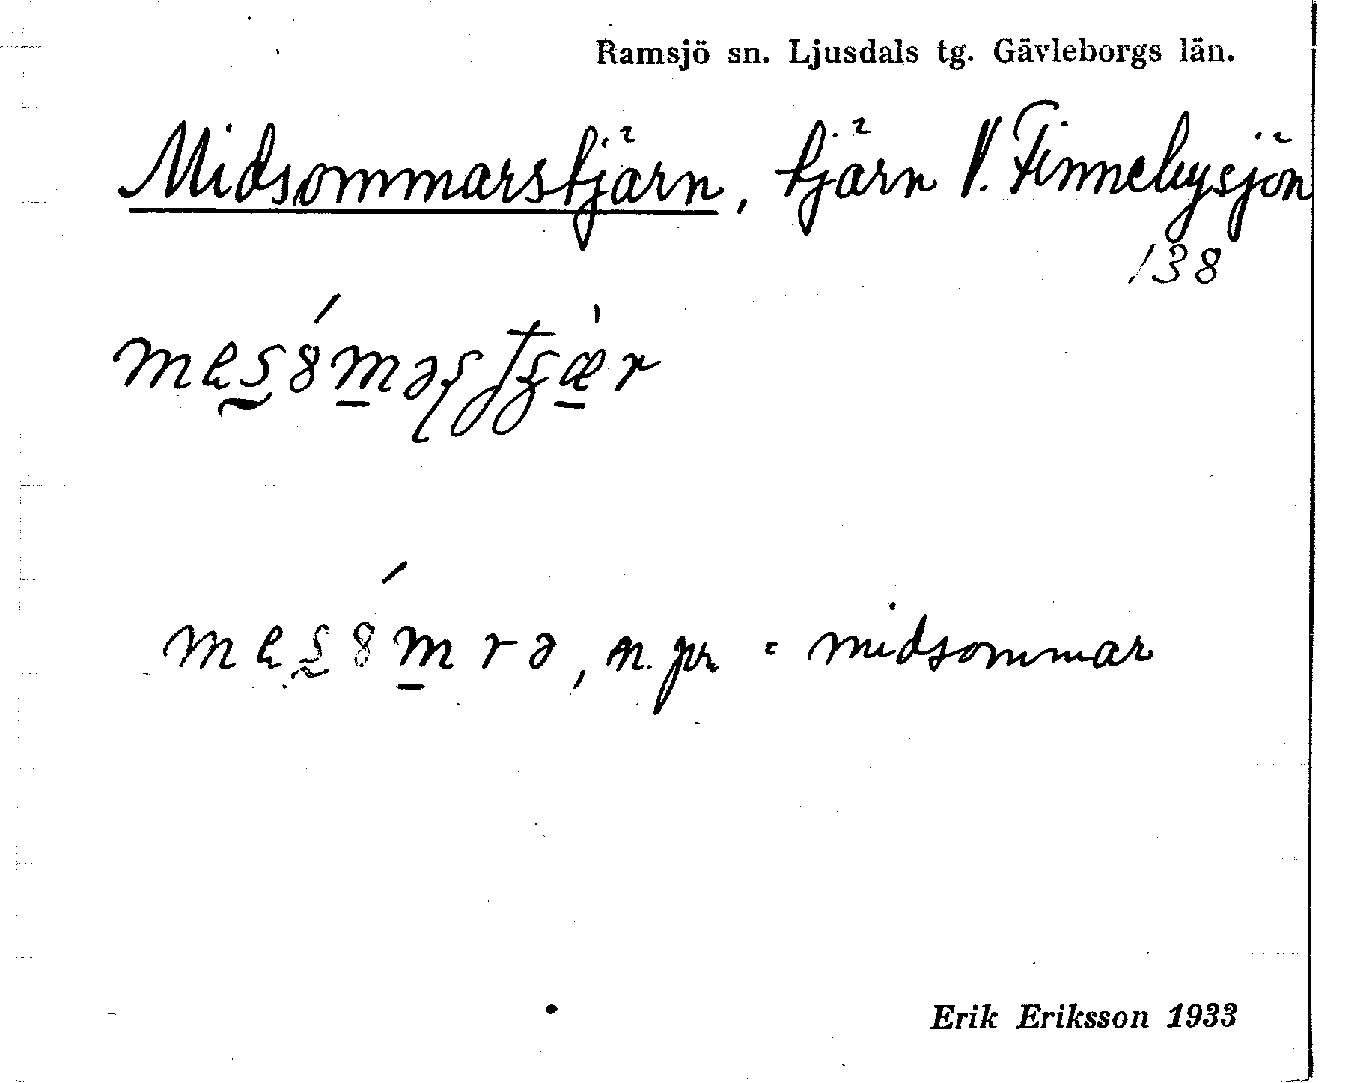 Ramsjö sn. Ljusdals tg. Gävleborgs län.
Midsommarstjärn, tjärn V. Finnebysjön
138
mesómra, n. pr. = midsommar
Erik Eriksson 1933